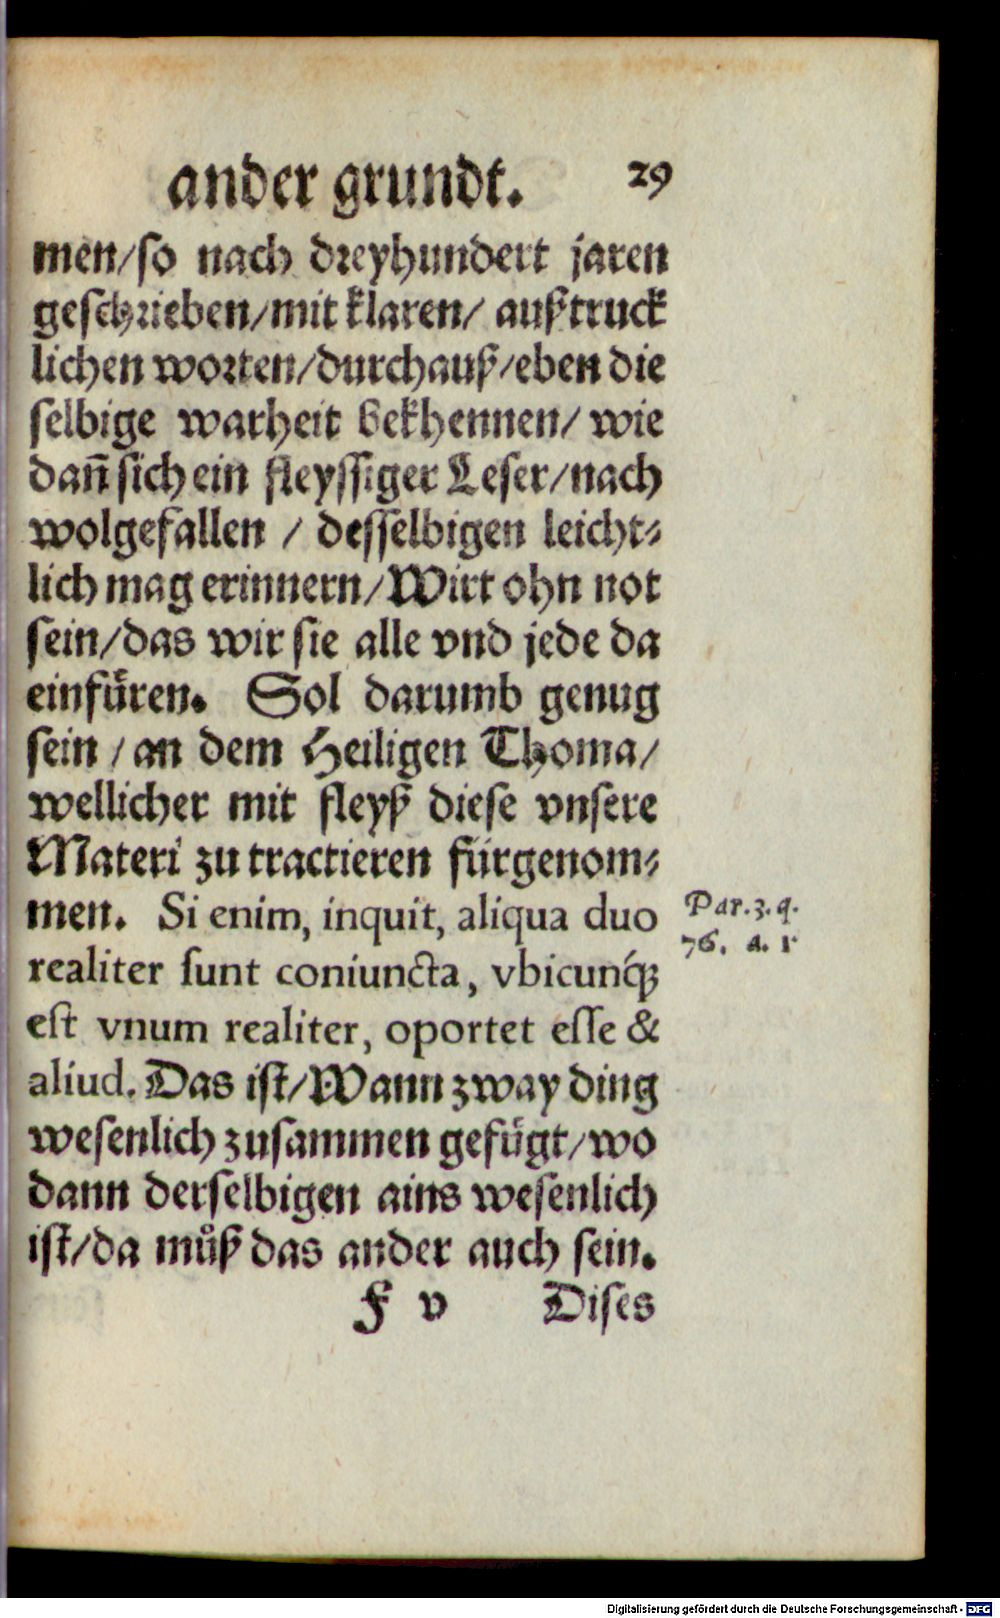 ander grundt. 29
men/so nach dreyhundert jaren
geschrieben/mit klaren/ außtruck
lichen worten/durchauß/eben die
selbige warheit bekhennen/ wie
dañ sich ein fleyssiger Leser/nach
wolgefallen / desselbigen leicht⸗
lich mag erinnern/Wirt ohn not
sein/das wir sie alle vnd jede da
einfuͤren. Sol darumb genug
sein / an dem Heiligen Thoma/
wellicher mit fleyß diese vnsere
Materi zu tractieren fürgenom⸗
men. Si enim, inquit, aliqua duo
Par.3.q.
realiter sunt coniuncta, vbicunq́;
76. a. 1
est vnum realiter, oportet esse &
aliud. Das ist/Wann zway ding
wesenlich zusammen gefuͤgt/wo
dann derselbigen ains wesenlich
ist/da muͦß das ander auch sein.
F v Dises
Digitalisierung gefördert durch die Deutsche Forschungsgemeinschaft - DFG